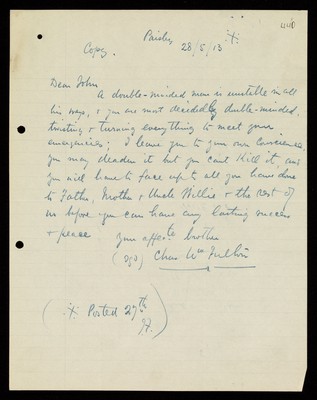 440
Paisley .X.
Copy. 28/5/13
Dear John,
A double-minded man is unstable in all
his ways, & you are most decidedly double-minded,
twisting & turning everything to meet your
emergencies; I leave you to your own conscience,
you may deaden it but you can't kill it, and
you will have to face up to all you have done
to Father, Mother & Uncle Willie & the rest of
us before you can have any lasting success
& peace. Your affecte brother
(sgd) Chas Wm Fullton
( .X. Posted 27th )